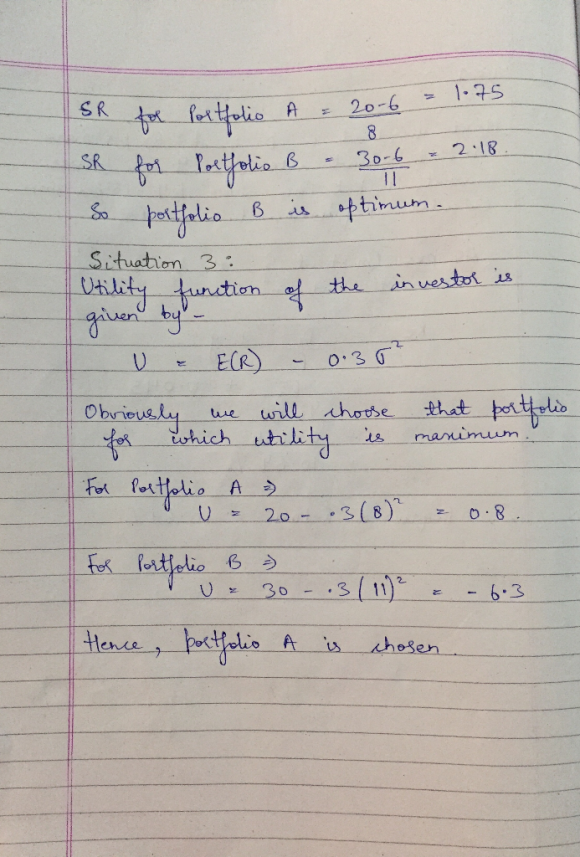 SR for Portfolio A = 20-6/8 = 1.75
SR for Portfolio B = 30-6/11 = 2.18.
So portfolio B is optimum.
Situation 3:
Utility function of the investor is
given by -
U = E(R) - 0.3 σ²
Obviously we will choose that portfolio
for which utility is maximum.
For Portfolio A ⇒
U = 20 - .3(8)² = 0.8.
For Portfolio B ⇒
U = 30 - .3(11)² = - 6.3
Hence, portfolio A is chosen.